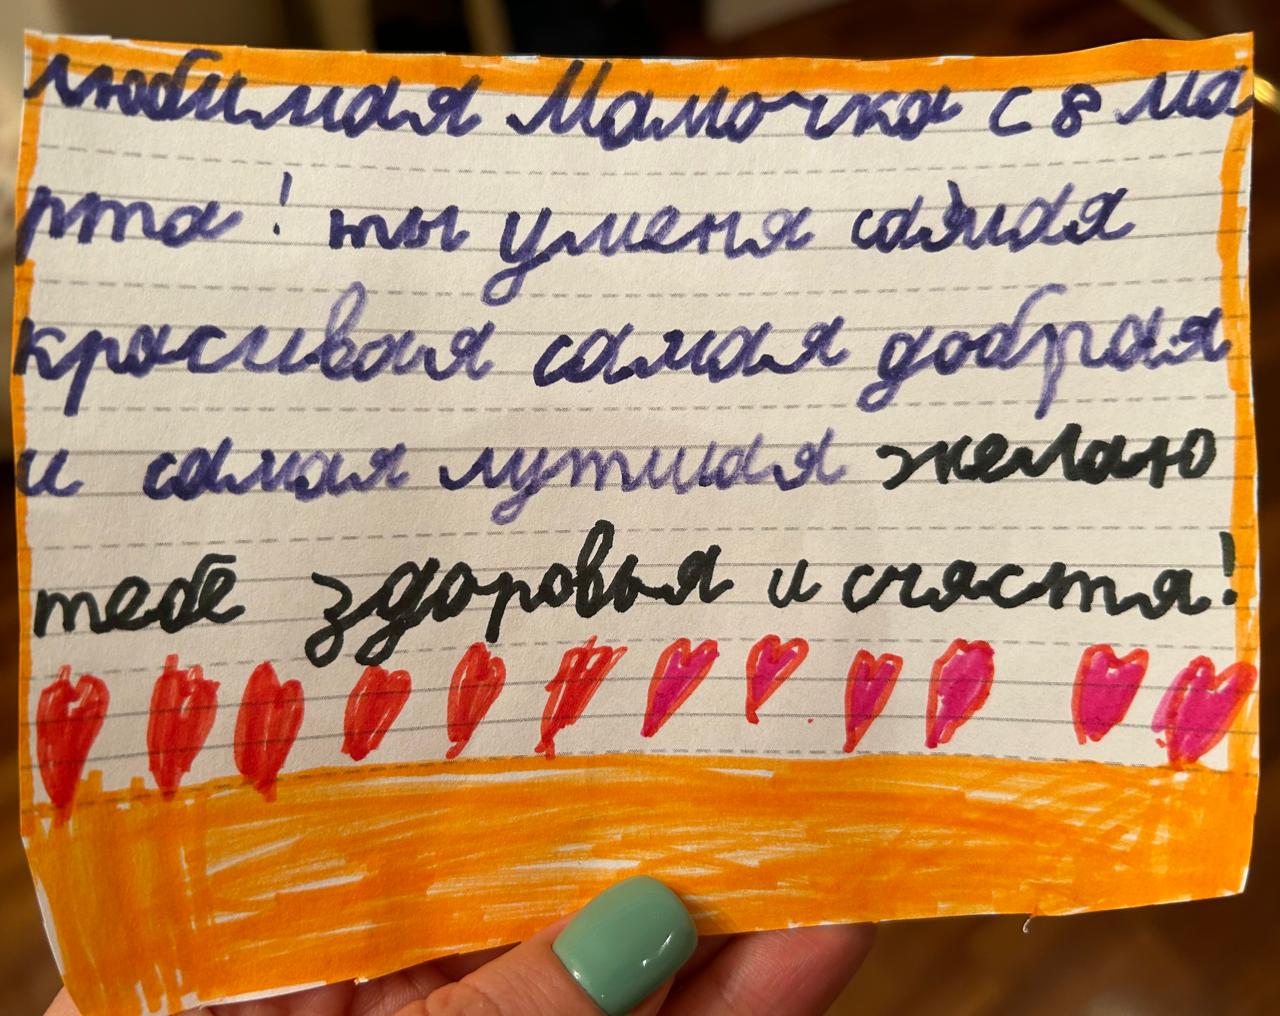 любимая Мамочка с 8 ма
рта! ты у меня самая
красивая самая добрая
и самая лутшая желаю
тебе здоровья и счястя!